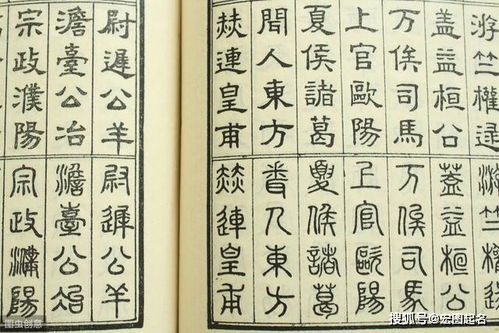 游竺權逯
蓋益桓公
万俟司馬
上官歐陽
夏侯諸葛
聞人東方
赫連皇甫
尉遲公羊
澹臺公冶
宗政濮陽
游竺權逯
蓋益桓公
万俟司馬
上官歐陽
夏侯諸葛
聞人東方
赫連皇甫
尉遲公羊
澹臺公冶
宗政濮陽
图虫创意
搜狐号@宏图起名